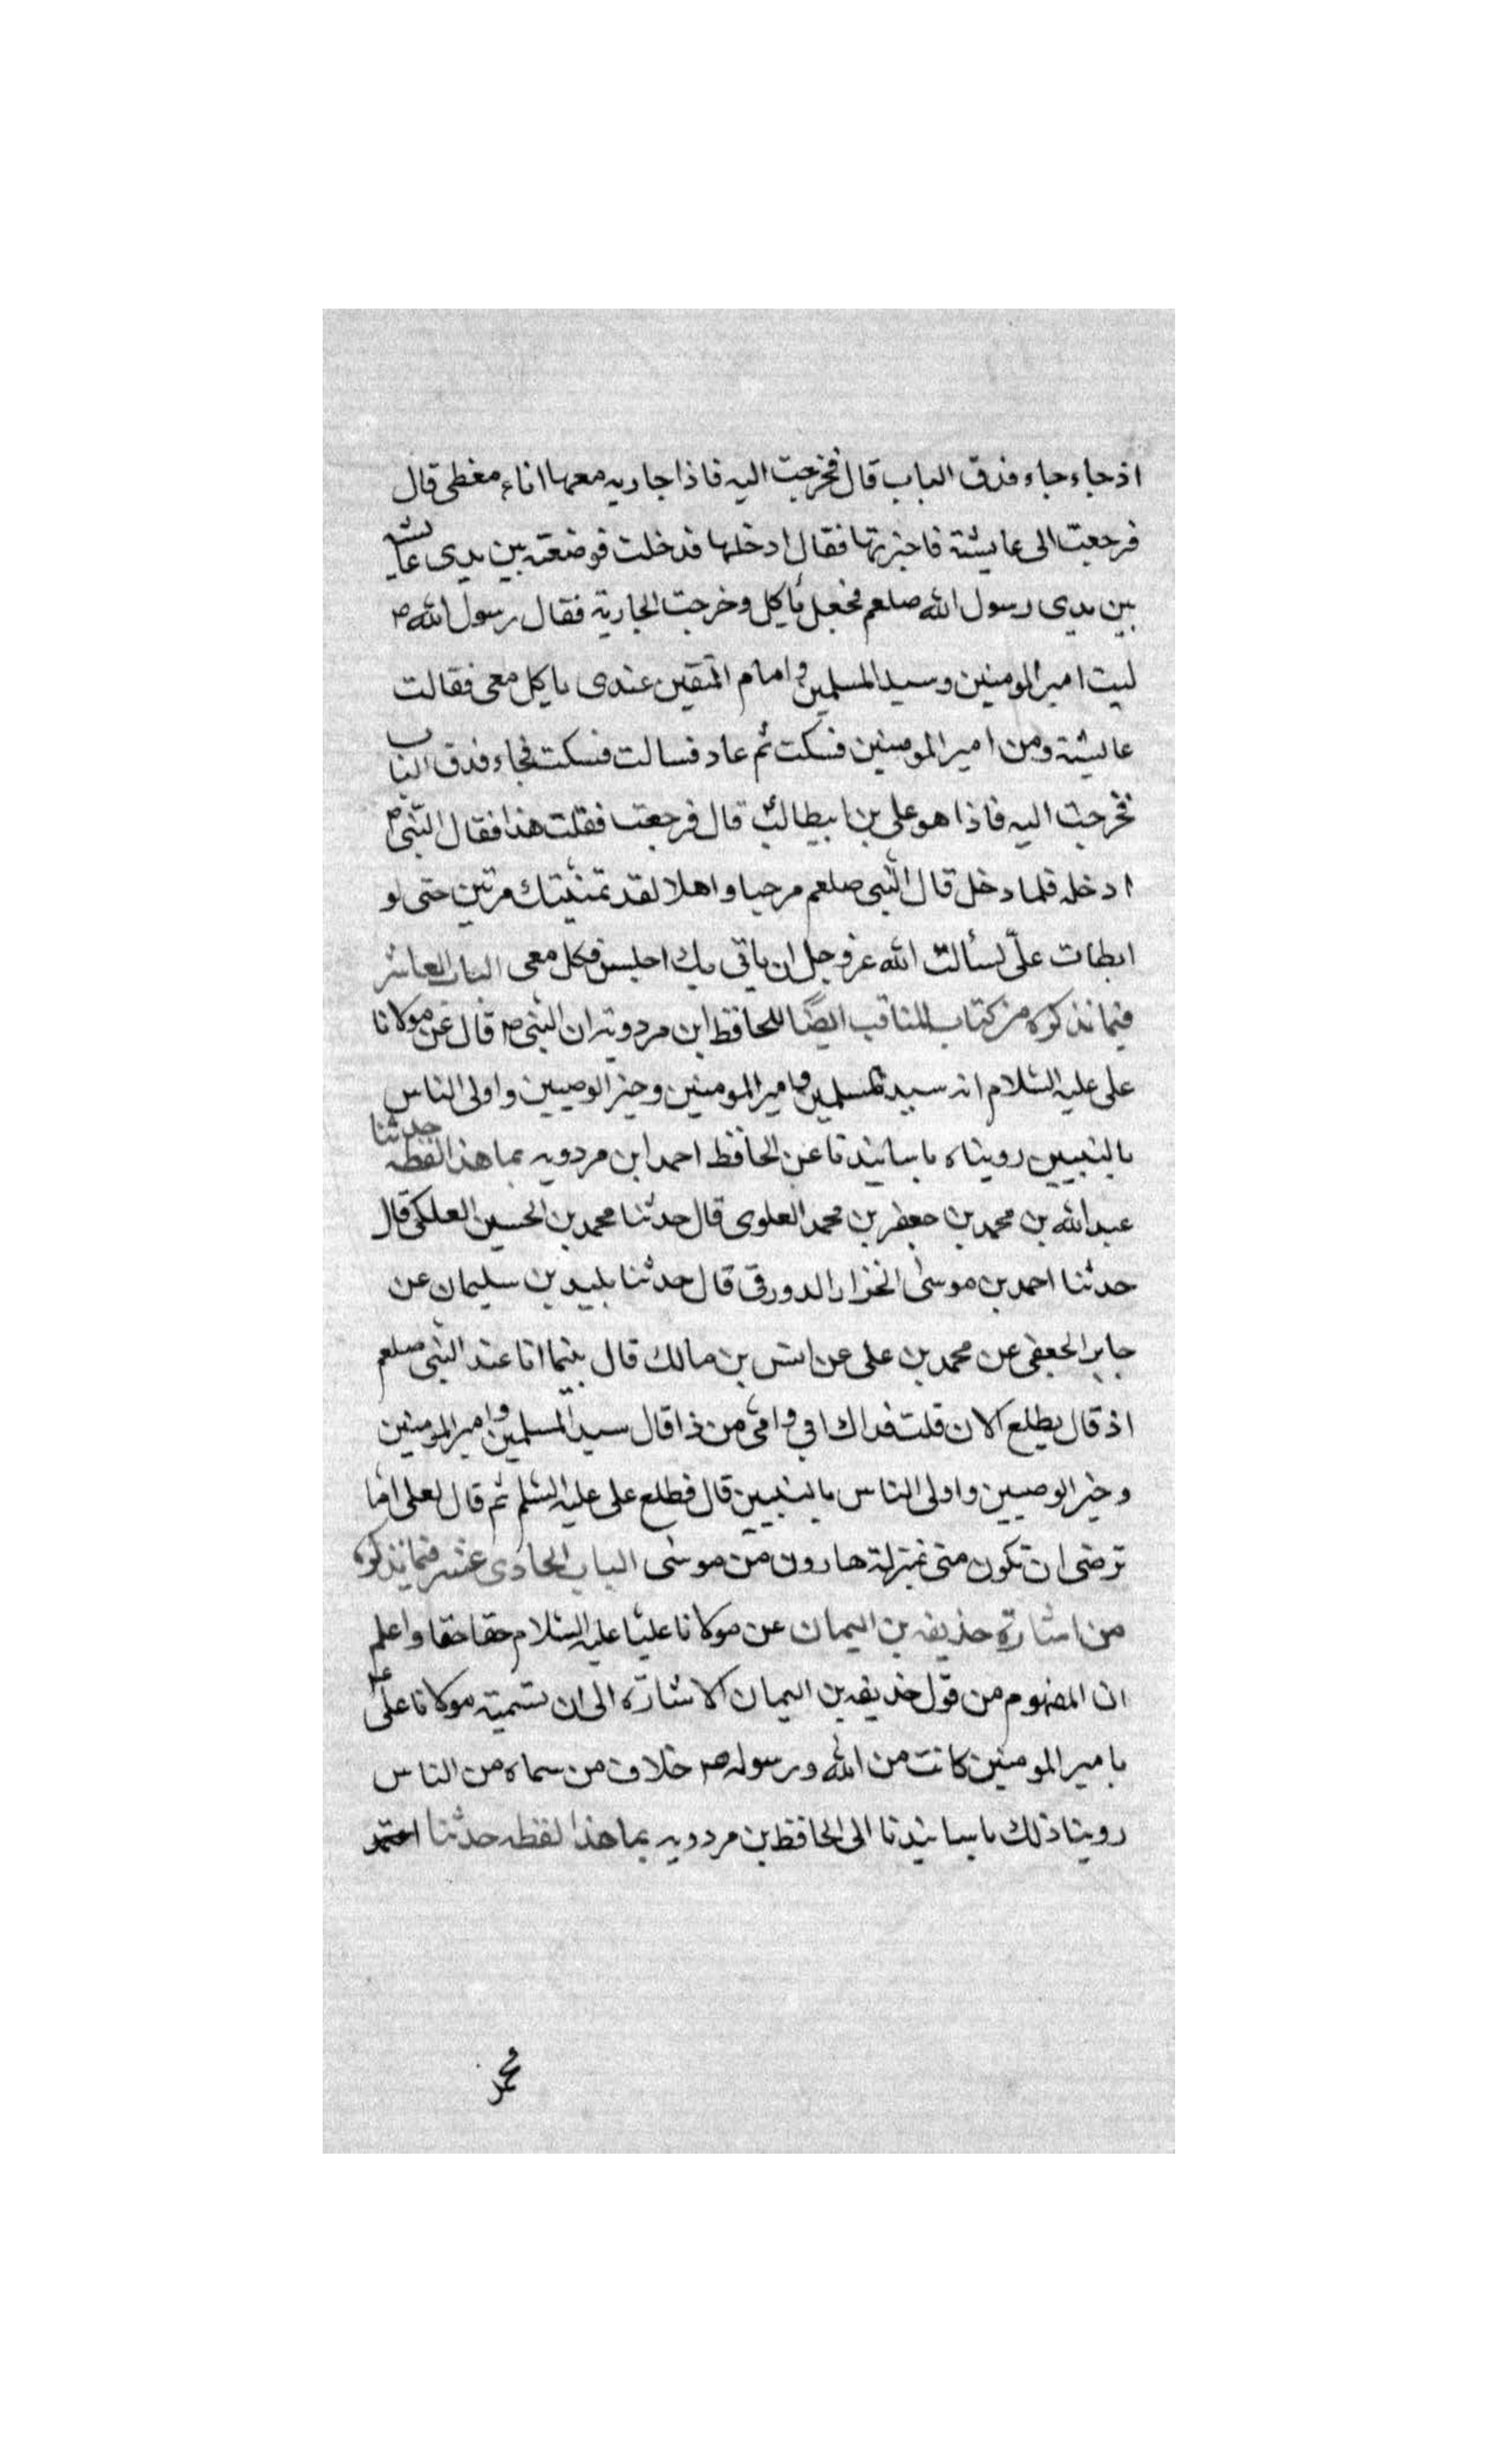 اذ جاء جاء فدق الباب قال فخرجت اليه فاذا جاريه معها اناء مغطى قال
فرجعت الى عايشة فاخبرتها فقال ادخلها فدخلت فوضعته بين يدى عايشه
بين يدى رسول الله صلعم فجعل ياكل وخرجت الجارية فقال رسول الله ص
ليت امير المومنين وسيد المسلمين وامام المتقين عندى ياكل معى فقالت
عايشة ومن امير المومنين فسكت ثم عاد فسالت فسكت فجاء فدق الباب
فخرجت اليه فاذا هو على بن ابيطالب قال فرجعت فقلت هذا فقال النبى ص
ادخله فلما دخل قال النبى صلعم مرحبا واهلا لقد تمنيتك مرتين حتى لو
ابطات علىّ لسألت الله عز وجل ان ياتى بك اجلس فكل معى الباب العاشر
فيما نذكره من كتاب المناقب ايضًا للحافظ ابن مردويه ان النبى ص قال عن مولانا
على عليه السلام انه سيد المسلمين وامير المومنين وخير الوصيين واولى الناس
بالنبيين رويناه باسانيدنا عن الحافظ احمد ابن مردويه بما هذا لفظه حدثنا
عبد الله بن محمد بن جعفر بن محمد العلوى قال حدثنا محمد بن الحسين العلكى قال
حدثنا احمد بن موسى الخزار الدورقى قال حدثنا بليد بن سليمان عن
جابر الجعفى عن محمد بن على عن انس بن مالك قال بينما انا عند النبى صلعم
اذ قال يطلع الان قلت فداك ابى وامى من ذا قال سيد المسلمين وامير المومنين
وخير الوصيين واولى الناس بالنبيين قال فطلع على عليه السلم ثم قال لعلى اما
ترضى ان تكون منى بمنزلة هارون من موسى الباب الحادى عشر فيما نذكره
من اشارة حذيفه بن اليمان عن مولانا عليا عليه السلام حقا حقا واعلم
ان المفهوم من قول حذيفه بن اليمان الاشارة الى ان تسمية مولانا على ع
بامير المومنين كانت من الله ورسوله ص خلاف من سماه من الناس
روينا ذلك باسانيدنا الى الحافظ بن مردويه بما هذا لفظه حدثنا احمد
محمد